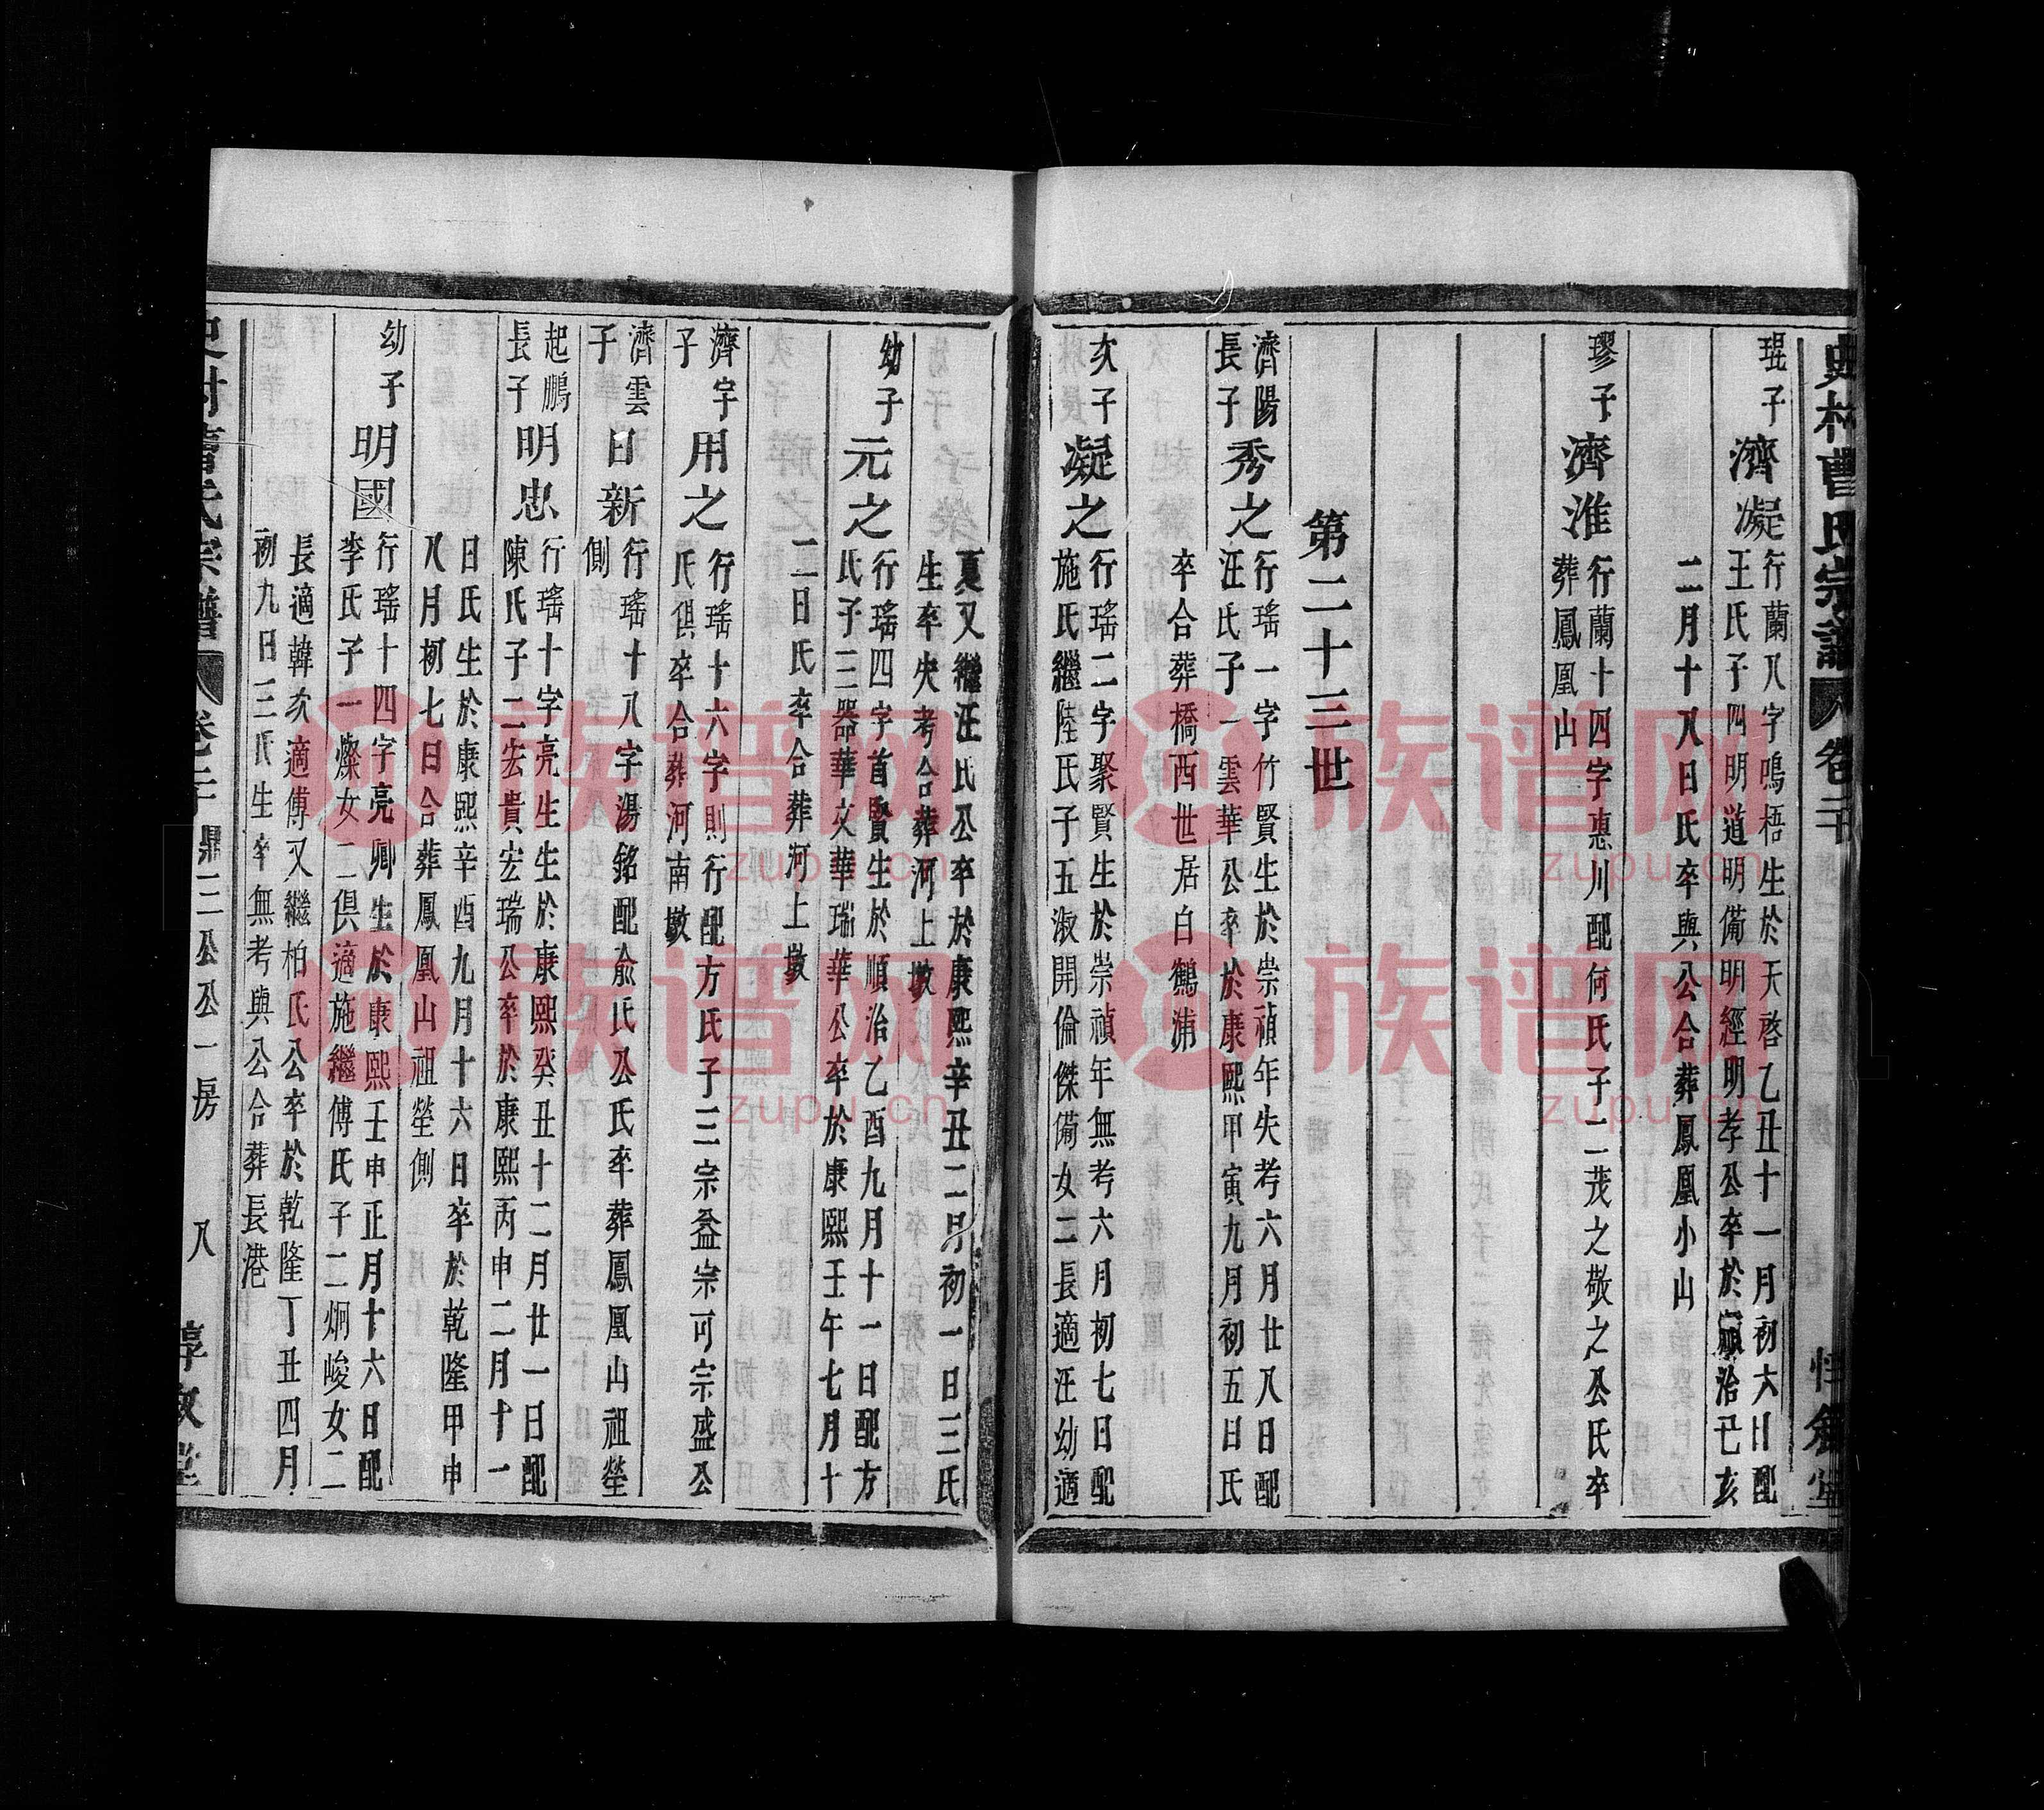 史村曹氏宗譜 卷二十 惇敘堂
琨子 濟凝 行蘭八字鳴梧生於天啓乙丑十一月初六日配
王氏子四明道明備明經明孝公卒於順治己亥
二月十八日氏卒與公合葬鳳凰小山
璆子 濟淮 行蘭十四字惠川配何氏子二茂之敬之公氏卒
葬鳳凰山
第二十三世
濟陽長子 秀之 行瑤一字竹賢生於崇禎年失考六月廿八日配
汪氏子一雲華公卒於康熙甲寅九月初五日氏
卒合葬橋西世居白鶴浦
次子 凝之 行瑤二字聚賢生於崇禎年無考六月初七日配
施氏繼陸氏子五淑開倫傑備女二長適汪幼適
夏又繼汪氏公卒於康熙辛丑二月初一日三氏
生卒失考合葬河上墩
幼子 元之 行瑤四字首賢生於順治乙酉九月十一日配方
氏子三器華文華瑞華公卒於康熙壬午七月十
二日氏卒合葬河上墩
濟宇子 用之 行瑤十六字則行配方氏子三宗益宗可宗盛公
氏俱卒合葬河南墩
濟雲子 日新 行瑤十八字湯銘配俞氏公氏卒葬鳳凰山祖塋
側
起鵬長子 明忠 行瑤十字亮生生於康熙癸丑十二月廿一日配
陳氏子二宏貴宏瑞公卒於康熙丙申二月十一
日氏生於康熙辛酉九月十六日卒於乾隆甲申
八月初七日合葬鳳凰山祖塋側
幼子 明國 行瑤十四字亮卿生於康熙壬申正月十六日配
李氏子一燦女二俱適施繼傅氏子二炯峻女二
長適韓次適傅又繼柏氏公卒於乾隆丁丑四月
初九日三氏生卒無考與公合葬長港
史村曹氏宗譜 卷二十 鼎三公公一房 八 惇敘堂
族谱网
zupu.cn
族谱网
zupu.cn
族谱网
zupu.cn
族谱网
zupu.cn